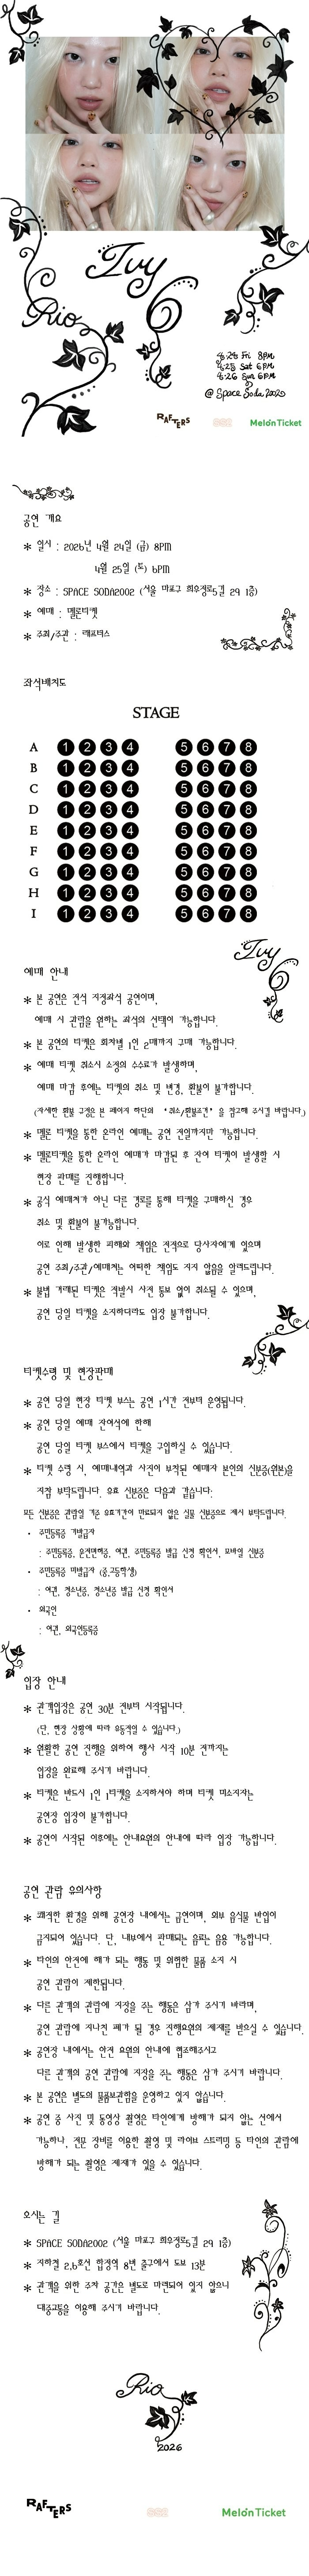 Ivy
Rio
4.24 Fri 8PM
4.25 Sat 6PM
4.26 Sun 6PM
@ Space Soda 2002
RAFTERS
Melon Ticket
공연 개요
* 일시 : 2026년 4월 24일 (금) 8PM
4월 25일 (토) 6PM
* 장소 : SPACE SODA2002 (서울 마포구 희우정로5길 29 1층)
* 예매 : 멜론티켓
* 주최/주관 : 래프터스
좌석배치도
STAGE
A 1 2 3 4 5 6 7 8
B 1 2 3 4 5 6 7 8
C 1 2 3 4 5 6 7 8
D 1 2 3 4 5 6 7 8
E 1 2 3 4 5 6 7 8
F 1 2 3 4 5 6 7 8
G 1 2 3 4 5 6 7 8
H 1 2 3 4 5 6 7 8
I 1 2 3 4 5 6 7 8
Ivy
예매 안내
* 본 공연은 전석 지정좌석 공연이며,
예매 시 관람을 원하는 좌석의 선택이 가능합니다.
* 본 공연의 티켓은 회차별 1인 2매까지 구매 가능합니다.
* 예매 티켓 취소시 소정의 수수료가 발생하며,
예매 마감 후에는 티켓의 취소 및 변경, 환불이 불가합니다.
(자세한 환불 규정은 본 페이지 하단의 '취소/환불조건'을 참고해 주시길 바랍니다.)
* 멜론 티켓을 통한 온라인 예매는 공연 전일까지만 가능합니다.
* 멜론티켓을 통한 온라인 예매가 마감된 후 잔여 티켓이 발생할 시
현장 판매를 진행합니다.
* 공식 예매처가 아닌 다른 경로를 통해 티켓을 구매하신 경우
취소 및 환불이 불가능합니다.
이로 인해 발생한 피해와 책임은 전적으로 당사자에게 있으며
공연 주최/주관/예매처는 어떠한 책임도 지지 않음을 알려드립니다.
* 불법 거래된 티켓은 적발시 사전 통보 없이 취소될 수 있으며,
공연 당일 티켓을 소지하더라도 입장 불가합니다.
티켓수령 및 현장판매
* 공연 당일 현장 티켓 부스는 공연 1시간 전부터 운영됩니다.
* 공연 당일 예매 잔여석에 한해
공연 당일 티켓 부스에서 티켓을 구입하실 수 있습니다.
* 티켓 수령 시, 예매내역과 사진이 부착된 예매자 본인의 신분증(원본)을
지참 부탁드립니다. 유효 신분증은 다음과 같습니다:
모든 신분증은 관람일 기준 유효기간이 만료되지 않은 실물 신분증으로 제시 부탁드립니다.
• 주민등록증 기발급자
: 주민등록증, 운전면허증, 여권, 주민등록증 발급 신청 확인서, 모바일 신분증
• 주민등록증 미발급자 (중,고등학생)
: 여권, 청소년증, 청소년증 발급 신청 확인서
• 외국인
: 여권, 외국인등록증
입장 안내
* 관객입장은 공연 30분 전부터 시작됩니다.
(단, 현장 상황에 따라 유동적일 수 있습니다.)
* 원활한 공연 진행을 위하여 행사 시작 10분 전까지는
입장을 완료해 주시기 바랍니다.
* 티켓은 반드시 1인 1티켓을 소지하셔야 하며 티켓 미소지자는
공연장 입장이 불가합니다.
* 공연이 시작된 이후에는 안내요원의 안내에 따라 입장 가능합니다.
공연 관람 유의사항
* 쾌적한 환경을 위해 공연장 내에서는 금연이며, 외부 음식물 반입이
금지되어 있습니다. 단, 내부에서 판매되는 음료는 음용 가능합니다.
* 타인의 안전에 해가 되는 행동 및 위험한 물품 소지 시
공연 관람이 제한됩니다.
* 다른 관객의 관람에 지장을 주는 행동은 삼가 주시기 바라며,
공연 관람에 지나친 폐가 될 경우 진행요원의 제재를 받으실 수 있습니다.
* 공연장 내에서는 안전 요원의 안내에 협조해주시고
다른 관객의 공연 관람에 지장을 주는 행동은 삼가 주시기 바랍니다.
* 본 공연은 별도의 물품보관함을 운영하고 있지 않습니다.
* 공연 중 사진 및 동영상 촬영은 타인에게 방해가 되지 않는 선에서
가능하나, 전문 장비를 이용한 촬영 및 라이브 스트리밍 등 타인의 관람에
방해가 되는 촬영은 제재가 있을 수 있습니다.
오시는 길
* SPACE SODA2002 (서울 마포구 희우정로5길 29 1층)
* 지하철 2,6호선 합정역 8번 출구에서 도보 13분
* 관객을 위한 주차 공간은 별도로 마련되어 있지 않으니
대중교통을 이용해 주시기 바랍니다.
Rio
2026
RAFTERS
Melon Ticket